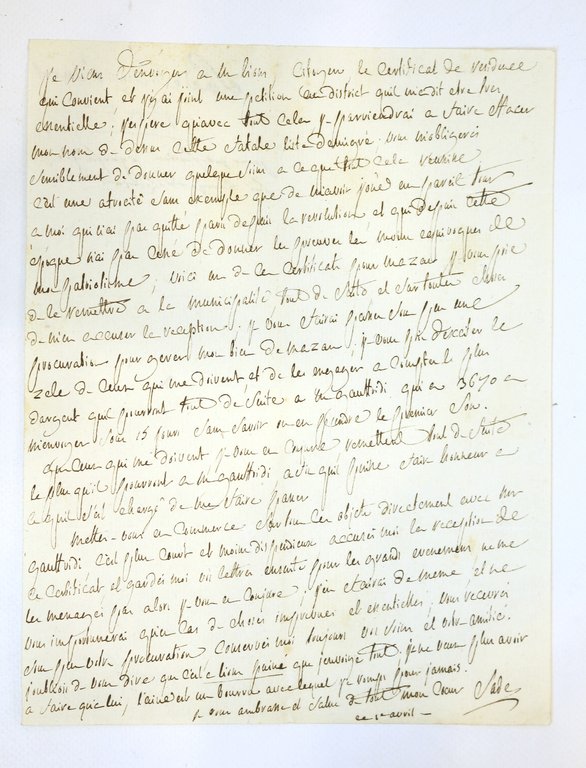 je viens d'envoyer a m lions citoyen le certificat de residence
qui convient et j'y ai joint une petition au district qui m'a dit etre tres
essentielle, j'espere qu'avec tout cela je parviendrai a faire effacer
mon nom de dessus cette fatale liste d'emigré. vous m'obligerés
sensiblement de donner quelques soins a ce que tout cela reussisse
c'est une atrocité sans exemple que de m'avoir joué un pareil tour
a moi qui n'ai pas quitté paris depuis la revolution et qui depuis cette
epoque n'ai pas cessé de donner les preuves les moins equivoques de
mon patriotisme; voici un de ces certificats pour mazan je vous prie
de le remettre a la municipalité tout de suite, et surtout
de m'en accuser la reception. je vous ferai passer sous peu une
procuration pour gerer mon bien de mazan, je vous prie d'exciter le
zele de ceux qui me doivent et de les engager a compter le plus
d'argent qu'ils pourront tout de suite a m gaufridi qui a 3670 a
m'envoyer sous 15 jours sans savoir ou en prendre le premier sou.
que ceux qui me doivent je vous en conjure remettent tout de suite
le plus qu'ils pourront a m gaufridi, afin qu'il puisse faire honneur a
ce qu'il s'est chargé de me faire passer
mettés-vous en commerce sur tous ces objets directement avec mr
gaufridi c'est plus court et moins dispendieux accusés moi la reception de
ce certificat et gardés moi vos lettres ensuite pour les grands evenements ne me
les menagés pas alors je vous en conjure; j'en ferai de meme, et ne
vous importunerai qu'en cas de choses imprevues et essentielles, vous recevrés
sous peu votre procuration conservés moi toujours vos soins et votre amitié.
j'oubliois de vous dire que c'est lions puiné que j'envoye tout. je ne veux plus avoir
a faire qu'a lui, l'ainé est un bourru avec lequel je romps pour jamais.
je vous embrasse et salue de tout mon cœur Sade
ce 1er avril